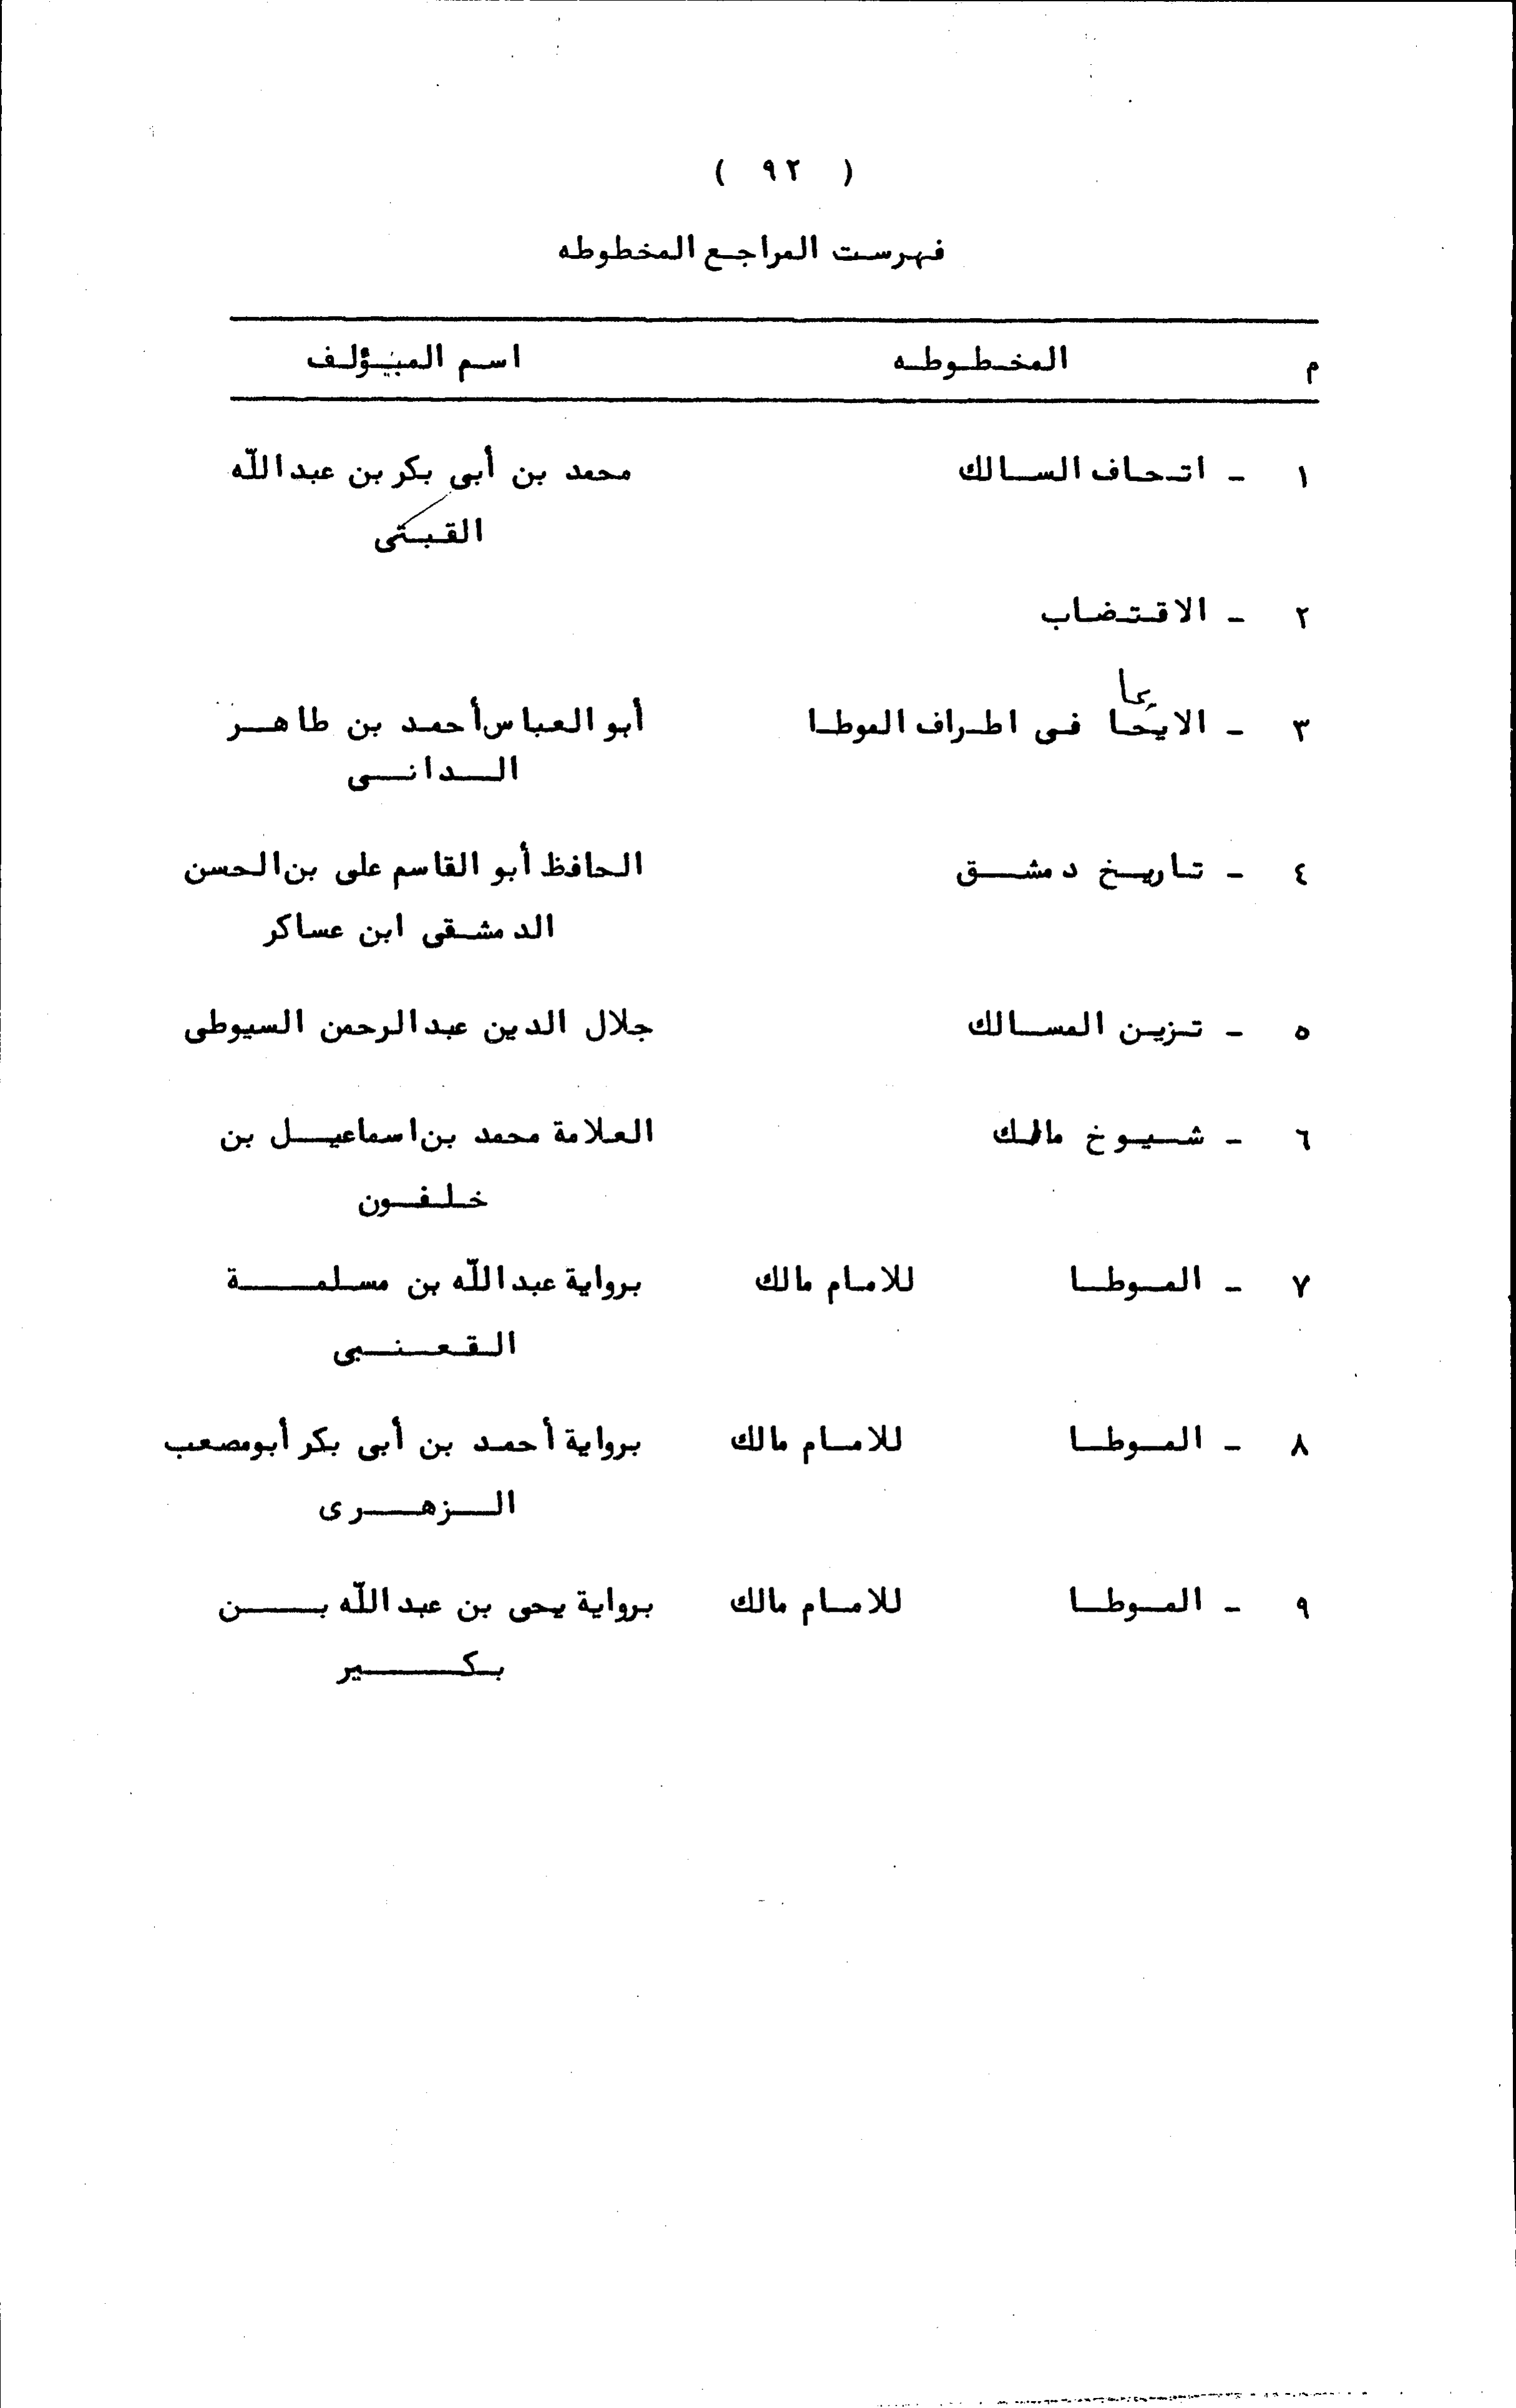 ( ٩٢ )
فهرست المراجع المخطوطه
م المخطوطه اسم المؤلف
١ - اتحاف السالك محمد بن أبى بكر بن عبدالله
القبتى
٢ - الاقتضاب
٣ - الايحا فى اطراف الموطا أبو العباس أحمد بن طاهر
الدانى
٤ - تاريخ دمشق الحافظ أبو القاسم على بن الحسن
الدمشقى ابن عساكر
٥ - تزين المسالك جلال الدين عبدالرحمن السيوطى
٦ - شيوخ مالك العلامة محمد بن اسماعيل بن
خلفون
٧ - الموطا للامام مالك برواية عبدالله بن مسلمة
القعنبى
٨ - الموطا للامام مالك برواية أحمد بن أبى بكر أبومصعب
الزهرى
٩ - الموطا للامام مالك برواية يحى بن عبدالله بن
بكير